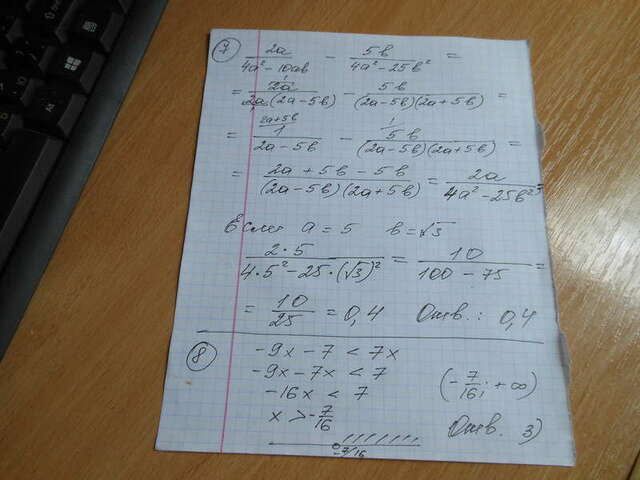 7 2a/(4a² - 10ab) - 5b/(4a² - 25b²) =
= 2a/(2a(2a-5b)) - 5b/((2a-5b)(2a+5b)) =
= (2a+5b) 1/(2a-5b) - (1) 5b/((2a-5b)(2a+5b)) =
= (2a + 5b - 5b)/((2a-5b)(2a+5b)) = 2a/(4a² - 25b²) =
Если a = 5 b = √3
2·5/(4·5² - 25·(√3)²) = 10/(100 - 75) =
= 10/25 = 0,4 Отв.: 0,4
8 -9x - 7 < 7x
-9x - 7x < 7
-16x < 7 (-7/16; + ∞)
x > -7/16
Отв. 3)
-7/16